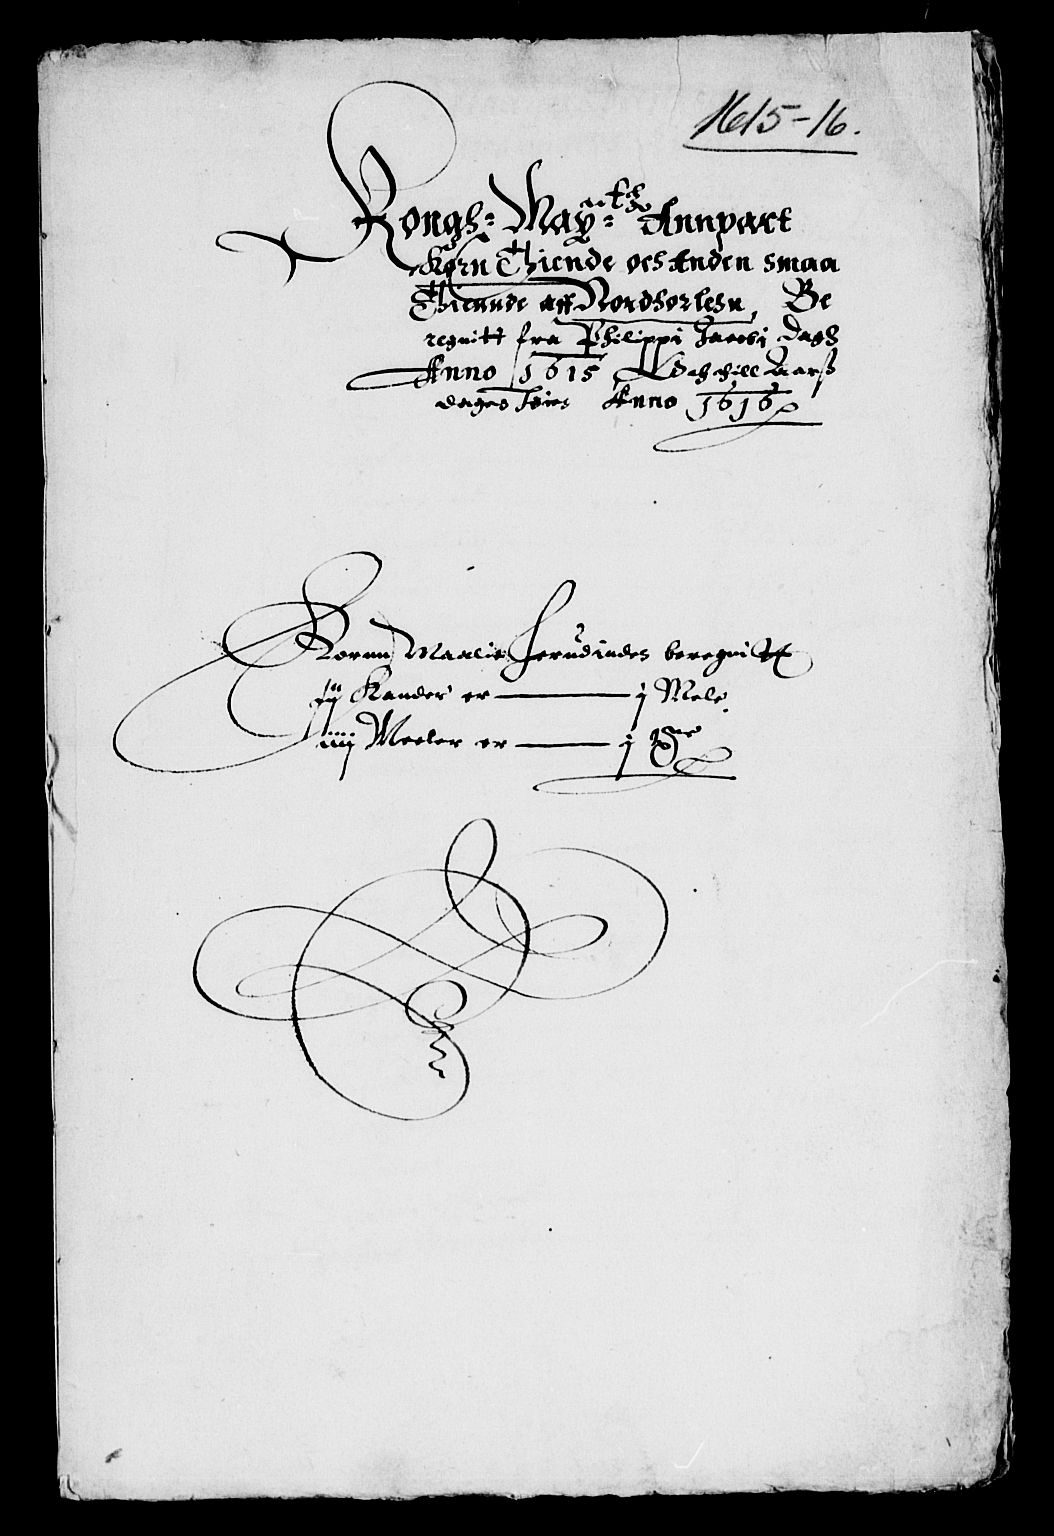 1615-16.
Kongh: May:ttz Annpart
Korn Thiende och Anden smaa
Thiennde aff Nordhorlehn, Be
regnitt fra Philippi Jacobi dagh
Anno 1615 Och thill Aarß
dagen Igien Anno 1616
Kornn Maalit herudinden beregnitt
iij Kander er — j Mele.
iiij Meeler er — j